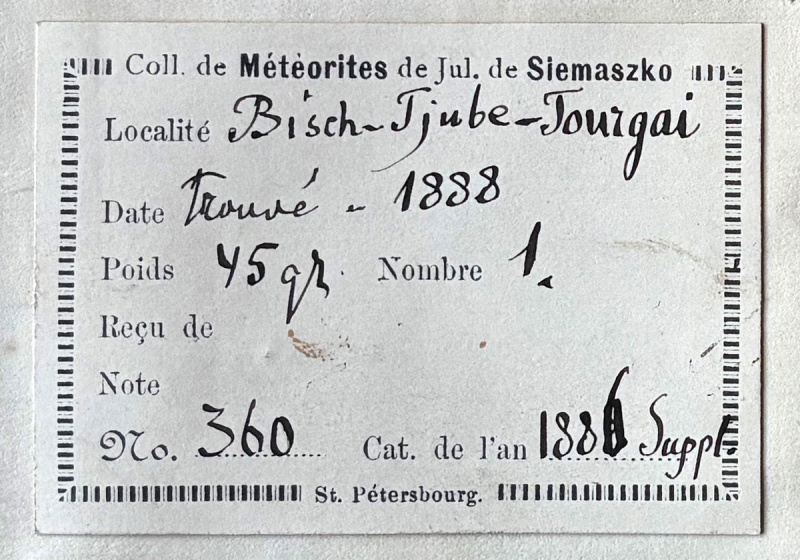 Coll. de Météorites de Jul. de Siemaszko
Localité Bisch-Tjube-Tourgai
Date Trouvé - 1888
Poids 45 gr. Nombre 1.
Reçu de
Note
No. 360 Cat. de l'an 1886 Suppl.
St. Pétersbourg.